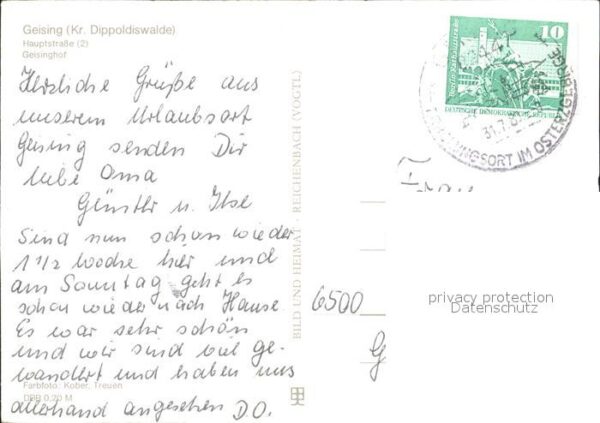 Geising (Kr. Dippoldiswalde)
Hauptstraße (2)
Geisinghof
Herzliche Grüße aus
unserem Urlaubsort
Geising senden Dir
liebe Oma
Günter u. Ilse
Sind nun schon wieder
1 1/2 Woche hier und
am Sonntag geht es
schon wieder nach Hause
Es war sehr schön
und wir sind viel ge-
wandert und haben uns
allerhand angesehen D.O.
Farbfoto: Kober, Treuen
DDB 0,20 M
BILD UND HEIMAT · REICHENBACH (VOGTL)
10
DEUTSCHE DEMOKRATISCHE REPUBLIK
31.7.
IM OSTERZGEBIRGE
Frau
6500
G
privacy protection
Datenschutz